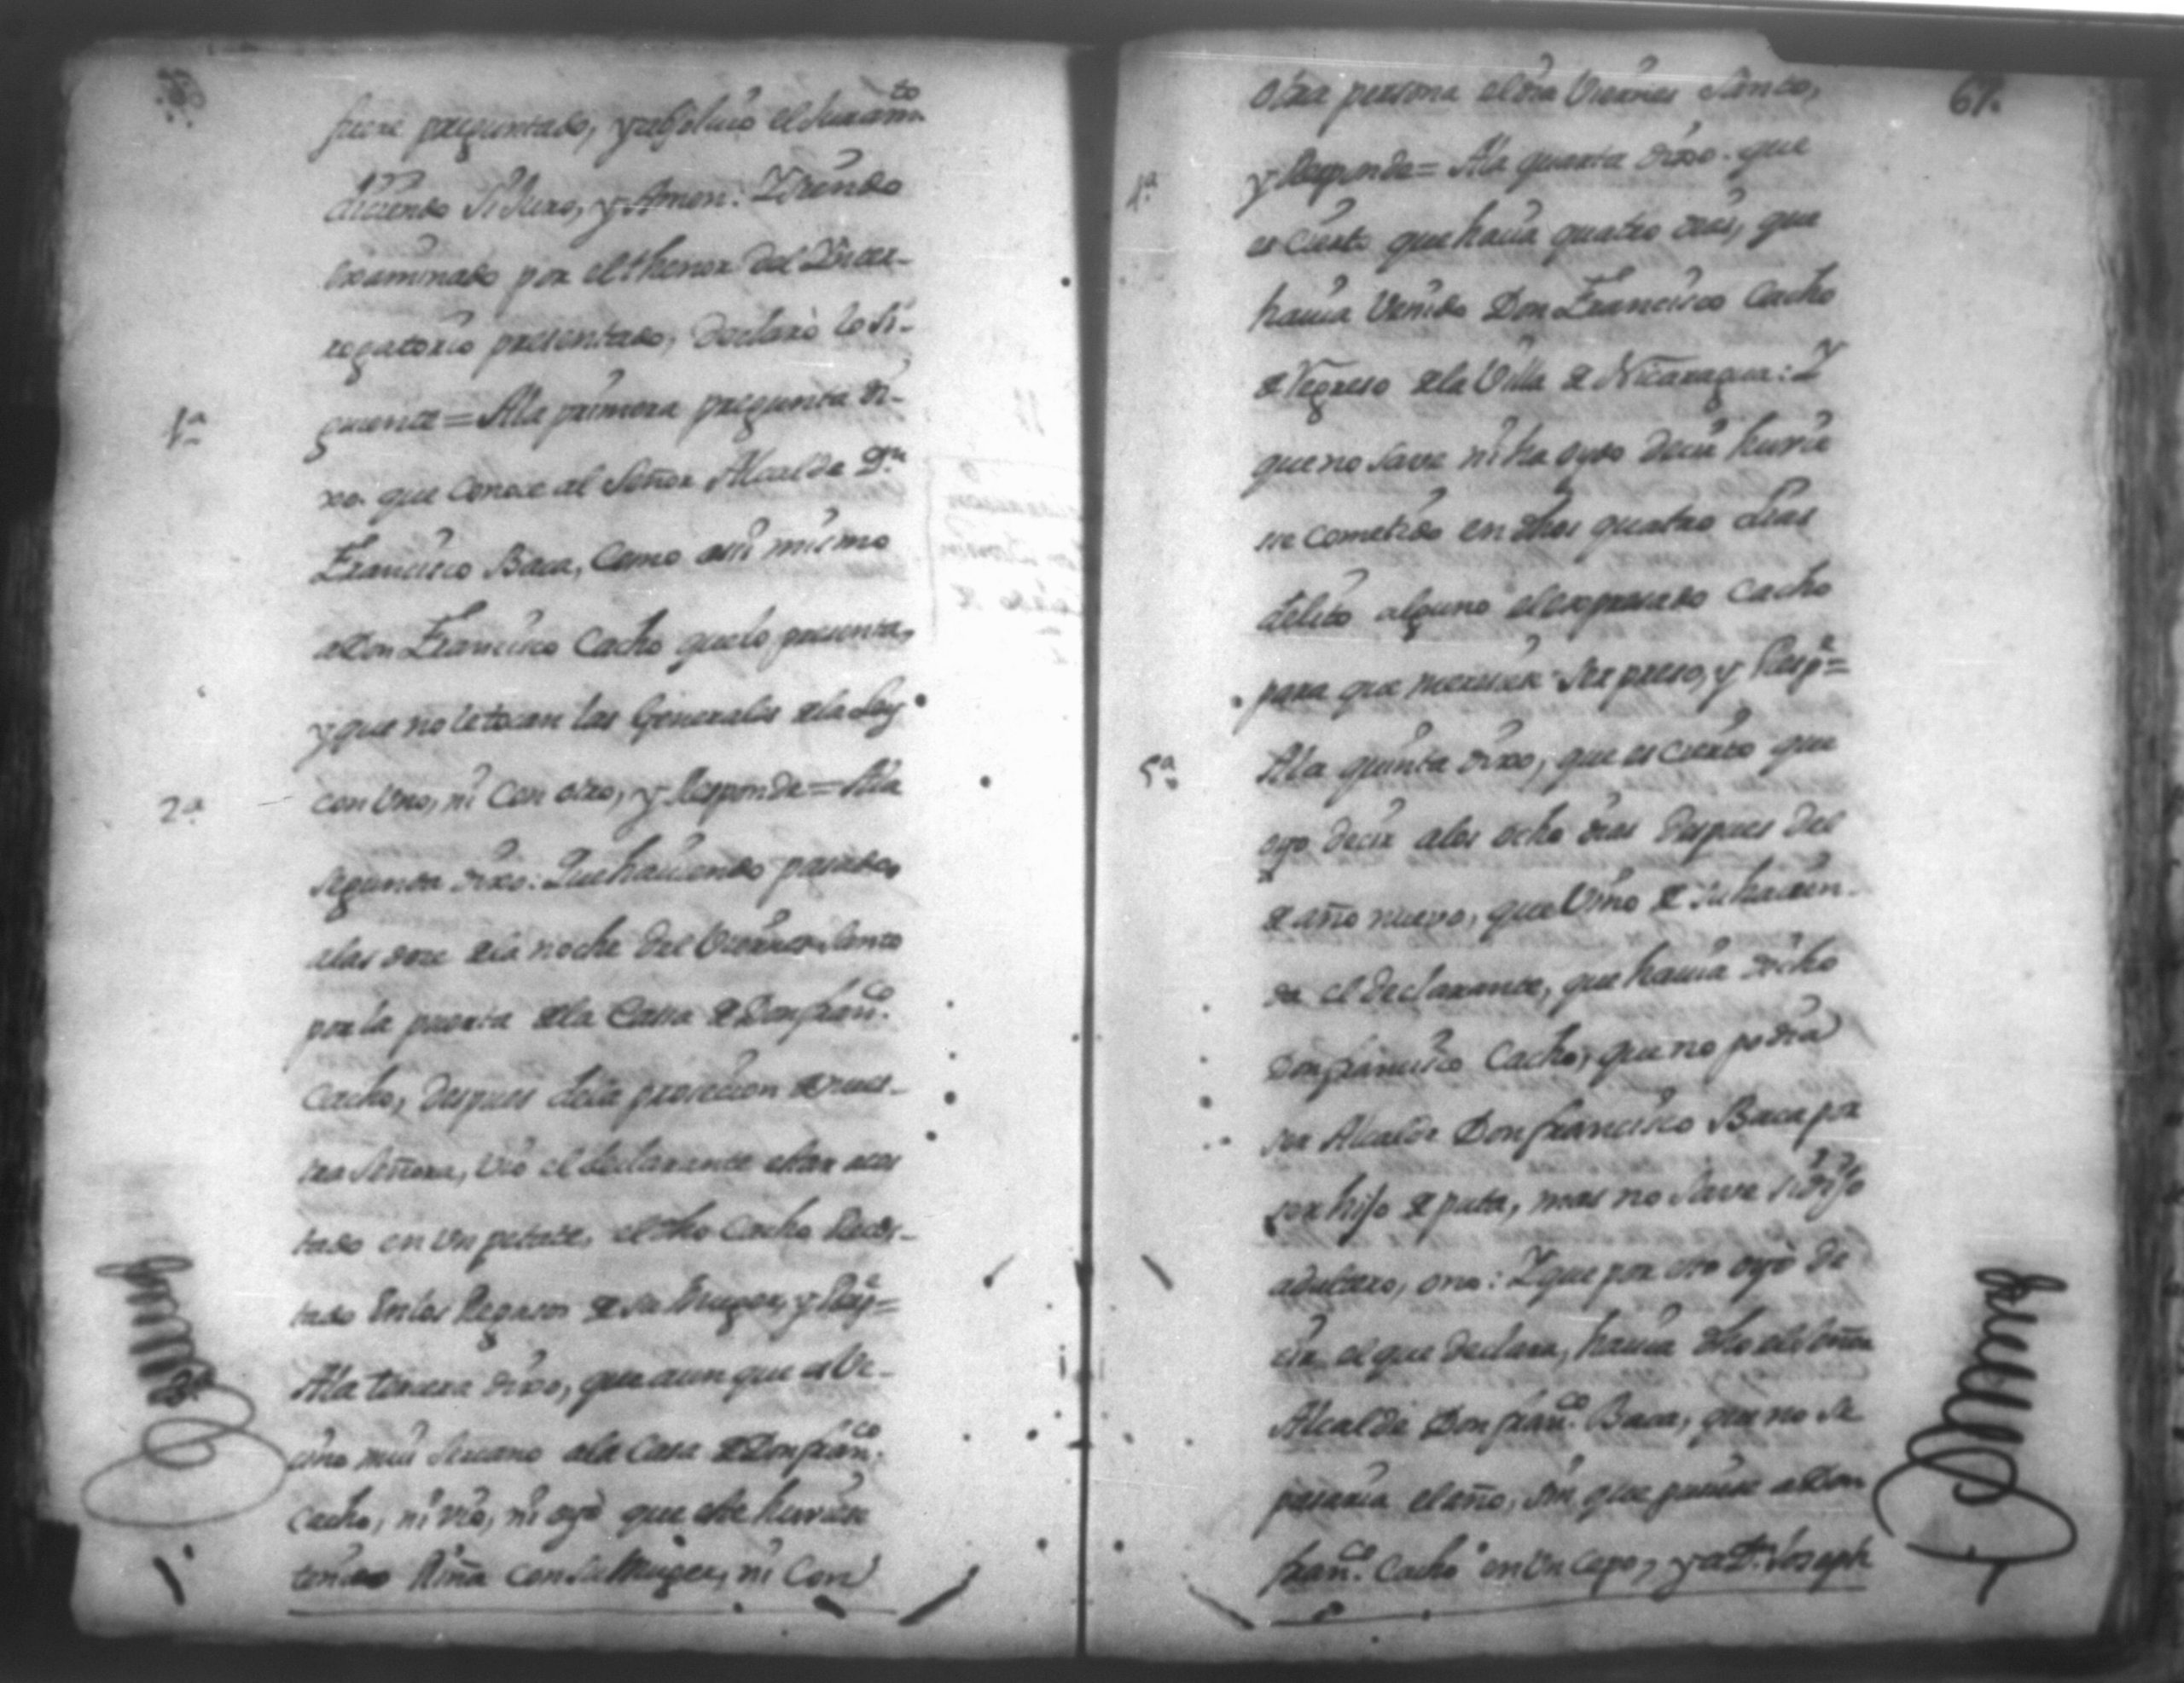 fuere preguntado, y absoluio el Juram.to
diciendo Si Juro, y Amen: Y siendo
examinado por el thenor del Inter-
rogatorio presentado, declarò lo Si-
1.a guiente = Ala primera pregunta di-
xo. que conoce al Señor Alcalde D.n
Francisco Baca, Como assi mismo
a Don Francisco Cacho que lo presenta,
y que no le tocan las Generales dela Ley
2.a con Uno, ni Con otro, y Responde = Ala
segunda dixo: Que haviendo pasado,
alas doze dela noche del Viernes Santo
por la puerta dela Cassa de Don fran.co
Cacho, despues dela prosecion de nues-
tra Señora, vio el declarante estar acos
tado en Un petate, el dho Cacho Recos-
tado En los Regasos de su Muger, y Resp.e =
3.a Ala tercera dixo, que aunque es Ve-
cino mui sercano ala Casa de Don fran.co
Cacho, ni vio, ni oyò que este huviese
tenido Riña con su Muger, ni Con
67.
otra persona el dia Viernes Santo,
4.a y Responde = Ala quarta dixo. que
es Cierto que havia quatro dias, que
havia Venido Don Francisco Cacho
de Regreso dela Villa de Nicaragua: Y
que no save ni ha oydo decir huvie
se cometido en dhos quatro dias
delito alguno el expresado Cacho
para que meresiese Ser preso, y Resp.e =
5.a Ala quinta dixo, que es cierto que
oyo decir alos ocho dias despues del
de año nuevo, que Vino de su hacien-
da el declarante, que havia dicho
Don francisco Cacho, que no podia
ser Alcalde Don francisco Baca por
ser hijo de puta, mas no save si dijo
adultero, o no: Y que por esto oyò de
cir el que declara, havia dho el Señor
Alcalde Don fran.co Baca, que no se
pasaria el año, sin que pusiese a Don
fran.co Cacho en Un cepo, y a D.n Joseph